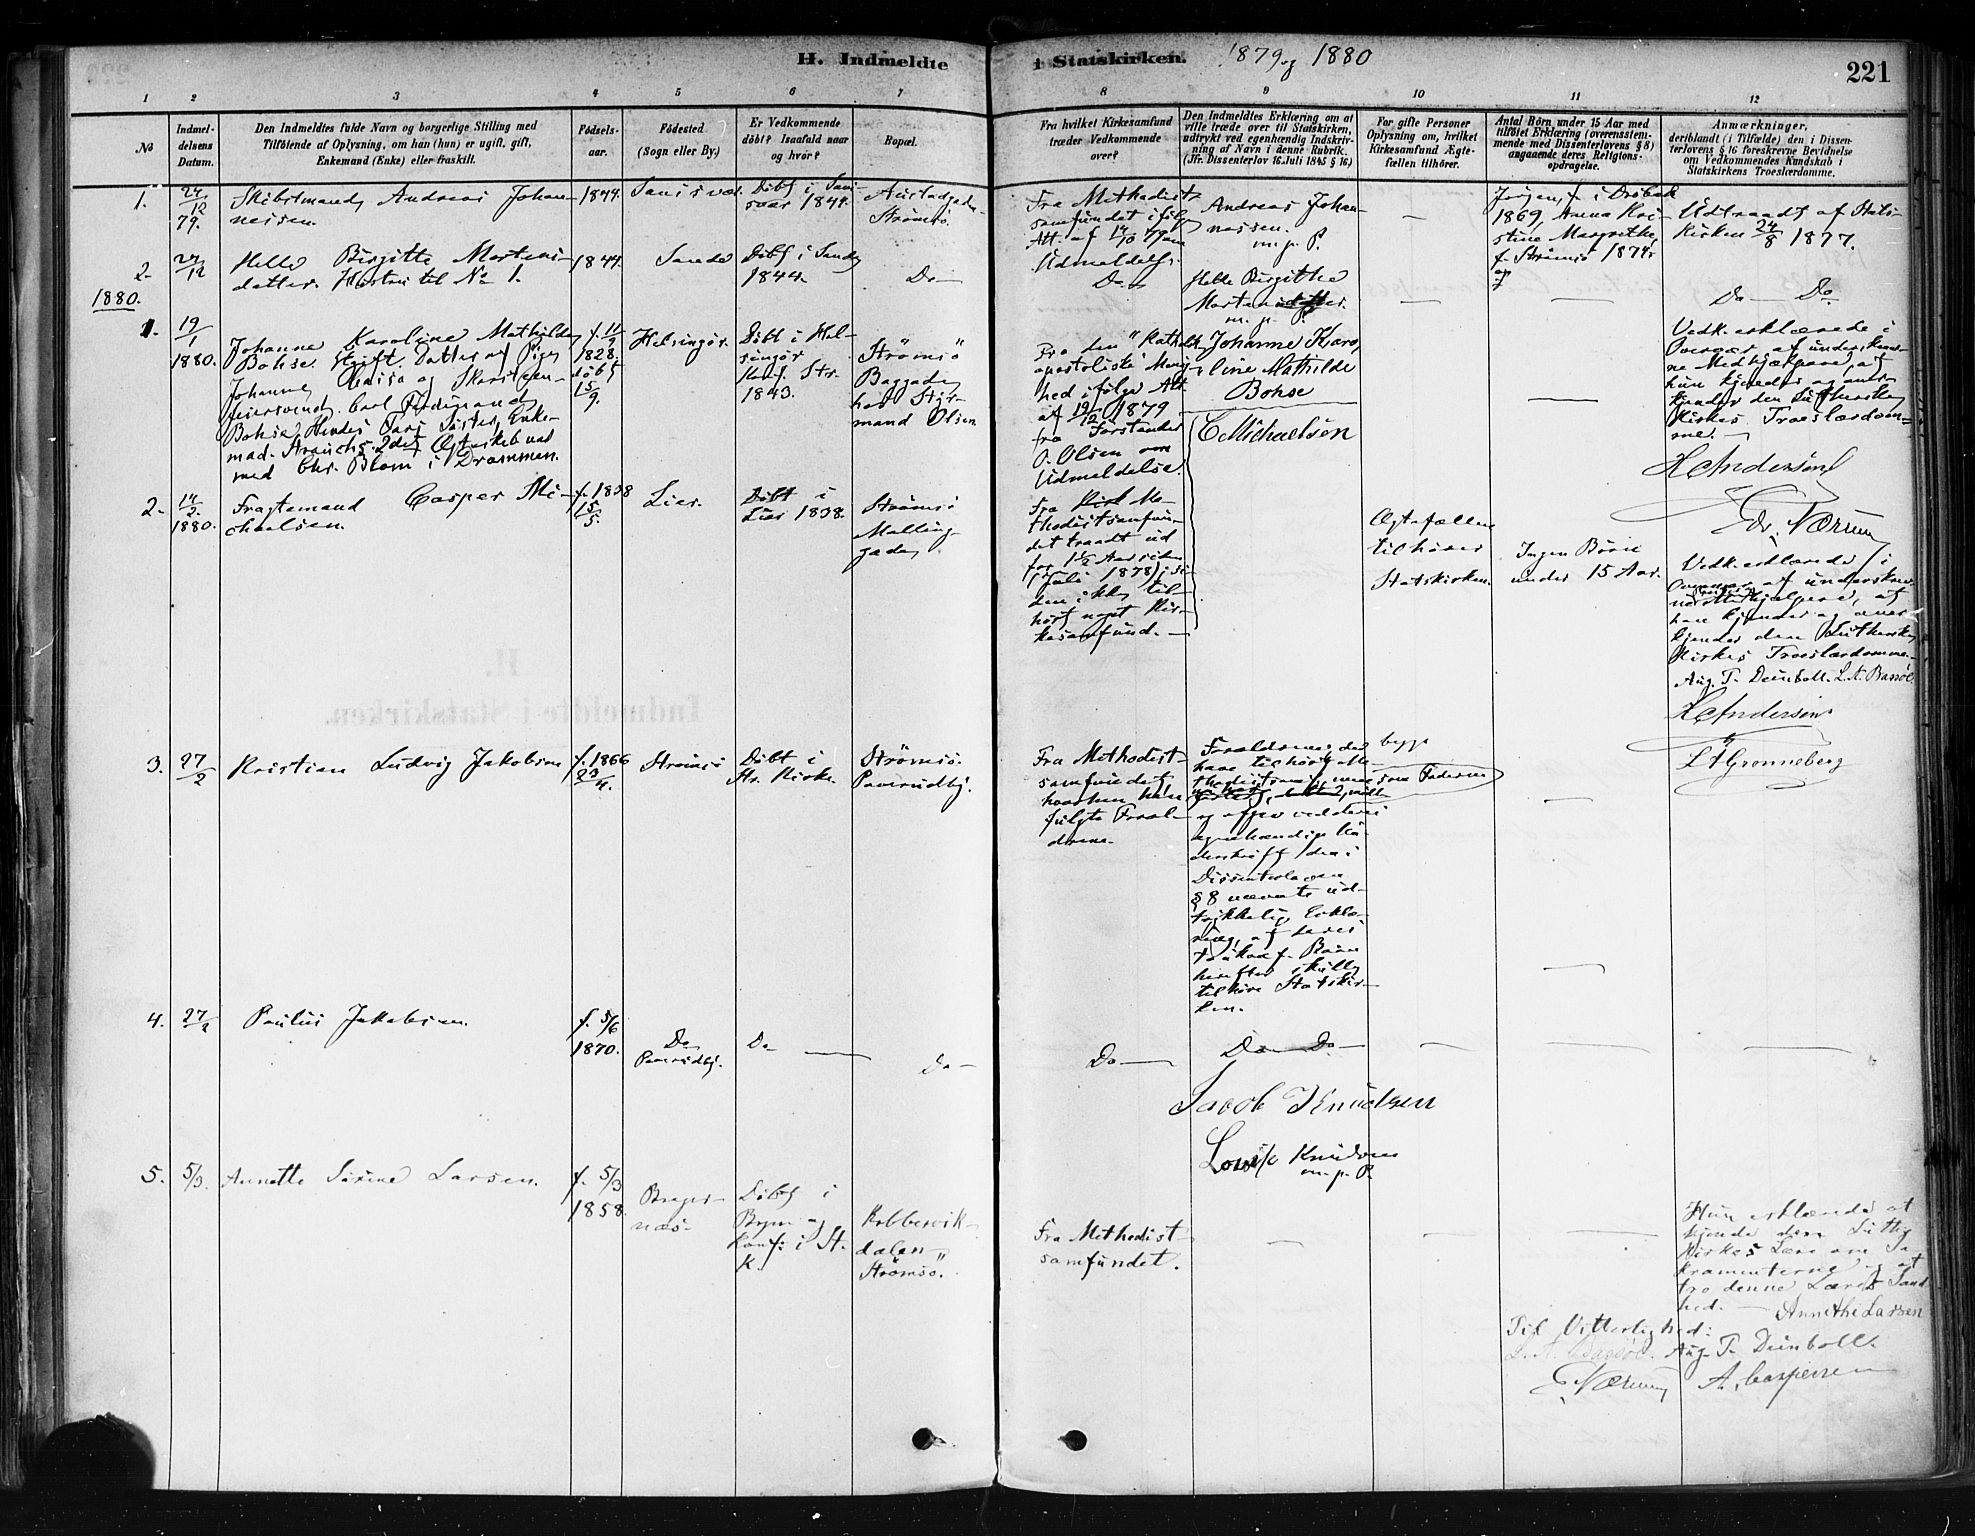 H. Indmeldte
i Statskirken. 1879 og 1880
221
1 2 3 4 5 6 7 8 9 10 11 12
No
Indmel-
delsens
Datum.
Den Indmeldtes fulde Navn og borgerlige Stilling med
Tilföiende af Oplysning, om han (hun) er ugift, gift,
Enkemand (Enke) eller fraskilt.
Födsels-
aar.
Födested
(Sogn eller By.)
Er Vedkommende
döbt? Isaafald naar
og hvor?
Bopæl.
Fra hvilket Kirkesamfund
træder Vedkommende
over?
Den Indmeldtes Erklæring om at
ville træde over til Statskirken,
udtrykt ved egenhændig Indskriv-
ning af Navn i denne Rubrik.
(Jfr. Dissenterlov 16 Juli 1845 § 16.)
For gifte Personer
Oplysning om, hvilket
Kirkesamfund Ægte-
fællen tilhörer.
Antal Börn under 15 Aar med
tilföiet Erklæring (overensstem-
mende med Dissenterlovens § 8)
angaaende deres Religions-
opdragelse.
Anmærkninger,
deriblandt (i Tilfælde) den i Dissen-
terlovens § 16 foreskrevne Bevidnelse
om Vedkommendes Kundskab i
Statskirkens Troeslærdomme.
1.
24/12
79.
Skibstmand, Andreas Johan-
nessen.
1844.
Döbt i San-
svær 1844.
Strömsö.
Fra Methodist-
samfundet ifölge
Att. af 14/10 79 om
Udmeldelse.
Andreas Johan-
nassen.
m. p. P.
—
Jörgen, f. i Dröbak
1869, Anna Kri-
stine Margrethe,
f. Strömsö 1874
Udtraadt af Stats-
kirken 24/8 1877.
2.
24/12
Helle Birgitte Mortens-
datter. Hustru til No 1.
1844.
Sande
Döbt i Sande
1844.
Do—
Do—
Helle Birgithe
Mortensdatter.
m. p. P.
—
—
Do— Do
1880.
1.
19/1
1880.
Johanne Karoline Mathilde
Bohse. Datter af Pige
Johanne
Carl Ferdinand
Bohse,
med Chr. Blom i Drammen.
f. 11/9
1828.
döbt
15/9.
Helsingör.
Döbt i Hel-
singör
Konf. Str.
1843.
Strömsö
Baggade,
hos Styr-
mand Olsen
Fra den "Katholsk
apostoliske Menig-
hed ifölge Att.
af 19/12 1879
fra Forstander
O. Olsen om
Udmeldelse.
Johanne Karo-
line Mathilde
Bohse
—
Vedk. erklærede i
Overvær af underskrev-
ne Medhjælpere, at
hun kjender og aner-
kjender den Lutherske
Kirkes Troeslærdom-
me. —
H Andersen
Edv. Nærum
2.
14/2.
1880.
Fragtemand Casper Mi-
chaelsen.
f. 1838
15/5.
Lier.
Döbt i
Lier 1838.
Strömsö
Malling-
gade,
Fra Me-
thodistsamfun-
det traadt ud
for 1 1/2 Aar siden
(Juli 1878), si-
den ikke til-
hört noget Kir-
kesamfund. —
C Michaelsen
Ægtefællen
tilhörer
Statskirken.
Ingen Börn
under 15 Aar.
Vedk. erklærede i
Overvær af underskrev-
ne Medhjælpere, at
han kjender og aner-
kjender den Lutherske
Kirkes Troeslærdomme.
Aug. T. Deinboll. L. A. Bassöe.
H Andersen
L A Grønneberg
3.
27/2
Kristian Ludvig Jakobsen
f. 1866
23/4.
Strömsö
Döbt i
Str. Kirke.
Strömsö.
Pavesudby.
Fra Methodist-
samfundet,
hvorhen han
fulgte Foræl-
drene.
Forældrene, der begge
have tilhört Me-
thodistsamf.
som Faderen
og afgav ved deres
egenhændige Un-
derskrift den i
Dissenterloven
§ 8 nævnte ud-
trykkelige Erklæ-
ring, at deres
Börn
herefter skulle
tilhöre Statskir-
ken.
—
—
4.
27/2
Paulus Jakobsen.
f. 5/6
1870.
Do
Pavesudby.
Do —
Do—
Do—
Do— Do—
—
—
—
Jacob Knudsen
Lovise Knudsen
m. p. P.
5.
5/3.
Annette Sörine Larsen.
f. 5/3
1858.
Brager-
næs.
Döbt i
Byen og
Konf. i St.
K.
Kobbervik-
dalen
Strömsö.
Fra Methodist-
samfundet.
—
—
—
Hun erklærede at
kjende den Luth.
Kirkes Lære om Sa-
kramenterne og at
tro denne Læres Sand-
hed. — Annethe Larsen
Til Vitterlighed:
L. A. Bassöe. Aug. T. Deinboll.
E. Nærum A. Caspersen